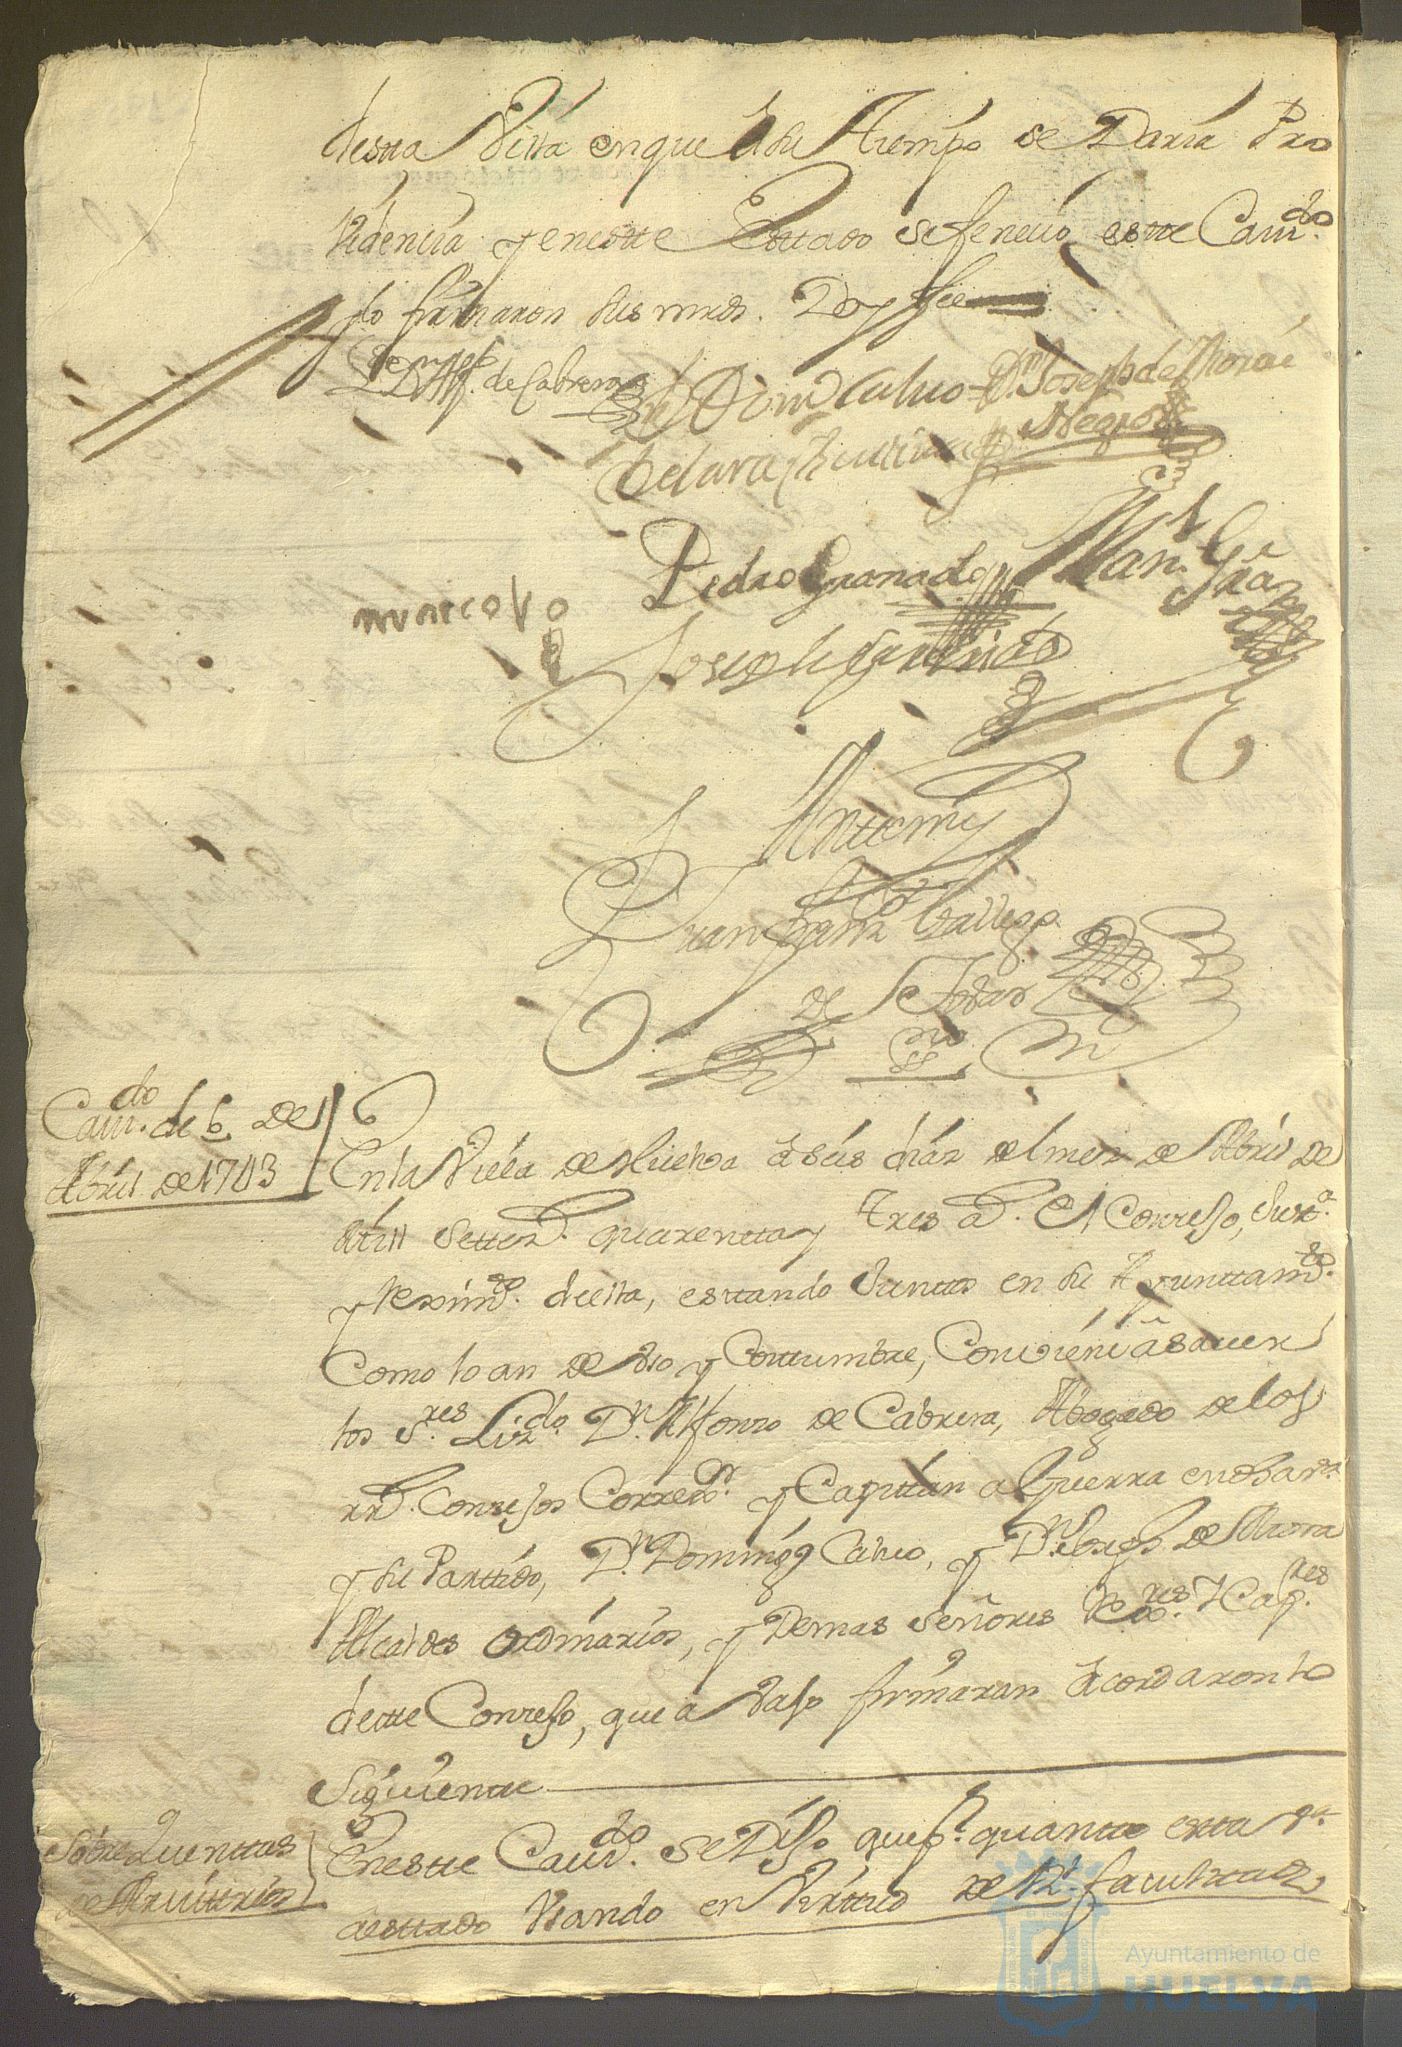 desta Villa en que a su tiempo se Daria Pro
videncia y en este Estado se fenecio este Cavdo.
y lo firmaron sus mrds. Doy fee
Lizdo. Dn. Alfo. de Cabrera
Dn. Domo. Calvo
Dn. Joseph de Mora
Negro
de Lara
Pedro Granado
Man. Graa
marcos
Joseph
Antte my
Juan Franz Gallego
y Tobar
sno
Cavdo. de 6 de
Abril de 1743
En la Villa de Huelva a seis dias del mes de Abril de
mill settez. quarenta y tres as. El Consejo, Justa.
y reximto. de ella, estando Juntos en su Ayuntamto.
Como lo an de Uso y Costumbre, Conviene a saver
los Sres. Lizdo. Dn. Alfonso de Cabrera, Abogado de los
rrs. Consejos Correxor. y Capitan a Guerra en ella
y su Partido, Dn. Domingo Calvo, y Dn. Joseph de Mora
Alcaldes ordinarios, y Demas Señores Rexres. y Capres.
deste Consejo, que avajo firmaran Acordaron lo
Siguiente
Sobre Quenttas
de Arvitrios
En este Cavdo. se Dijo que pr. quanto esta Va.
a estado Usando en Virtud de Rl. facultad
Ayuntamiento de
HUELVA